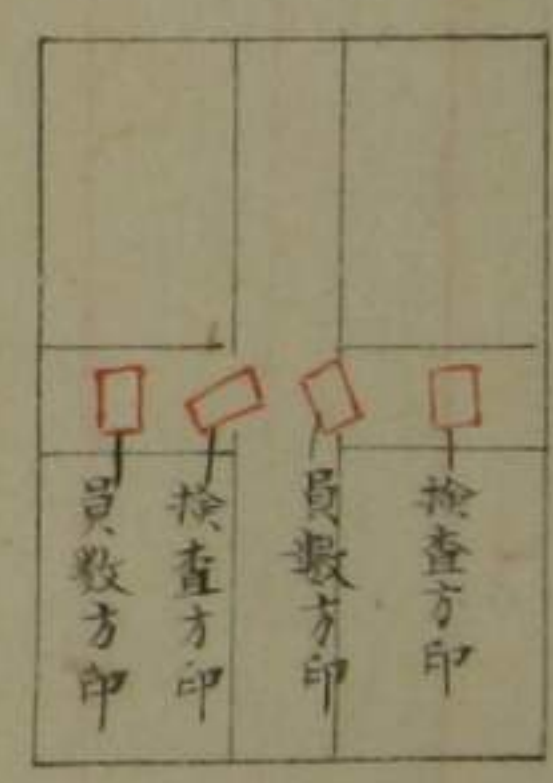 検査方印
員数方印
検査方印
員数方印